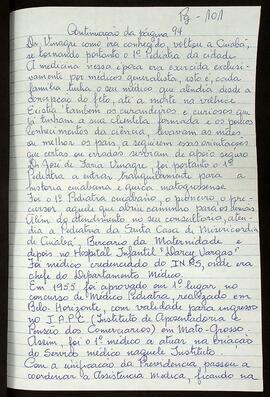 Pg - 101
Continuação da página 94
Dr. Vinagre como era conhecido, voltou a Cuiabá,
se tornando portanto o 1º Pediatra da cidade.
A medicina nessa época era exercida exclusi-
vamente por médicos generalista, isto é, cada
família tinha o seu médico que atendia desde a
concepção do feto, até a morte na velhice
Existia também os curandeiros e curiosos que
já tinham a sua clientela formada e os poucos
conhecimentos da ciência, levavam as mães
ou melhor os pais, a seguirem essas orientações
que certas ou erradas serviam de apoio seguro
Dr. José de Faria Vinagre, foi portanto o 1º
Pediatra a entrar tranquilamente para a
história cuiabana e quiçá matogrossense.
Foi o 1º Pediatra cuiabano, o pioneiro o pre-
cursor, aquele que abriu caminho para os demais
Além do atendimento no seu consultório, aten-
dia a Pediatria da Santa Casa de Misericórdia
de Cuiabá, Berçário da Maternidade e
depois no Hospital Infantil "Darcy Vargas"
Foi médico credenciado do INPS, onde era
chefe do Departamento Médico.
Em 1955 foi aprovado em 1º lugar no
concurso de Médico Pediatra, realizado em
Belo-Horizonte, com validade para ingresso
no I.A.P.C (Instituto de Aposentadoria e
Pensão dos Comerciários) em Mato-Grosso.
Assim, foi o 1º médico a atuar na
do Serviço médico naquele Instituto.
Com a unificação da Previdência, passou a
coordenar a Assistência Médica, ficando na